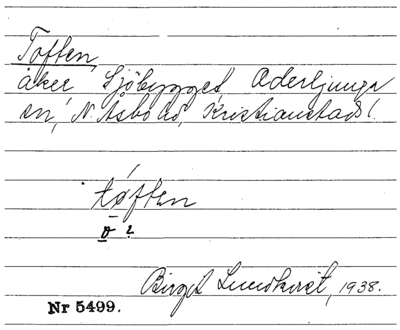 Toften
åker Sjöbygget, Oderljunga
sn, N. Åsbo hd, Kristianstads l.
tøften
ø ?
Birgit Lundkvist, 1938.
Nr 5499.